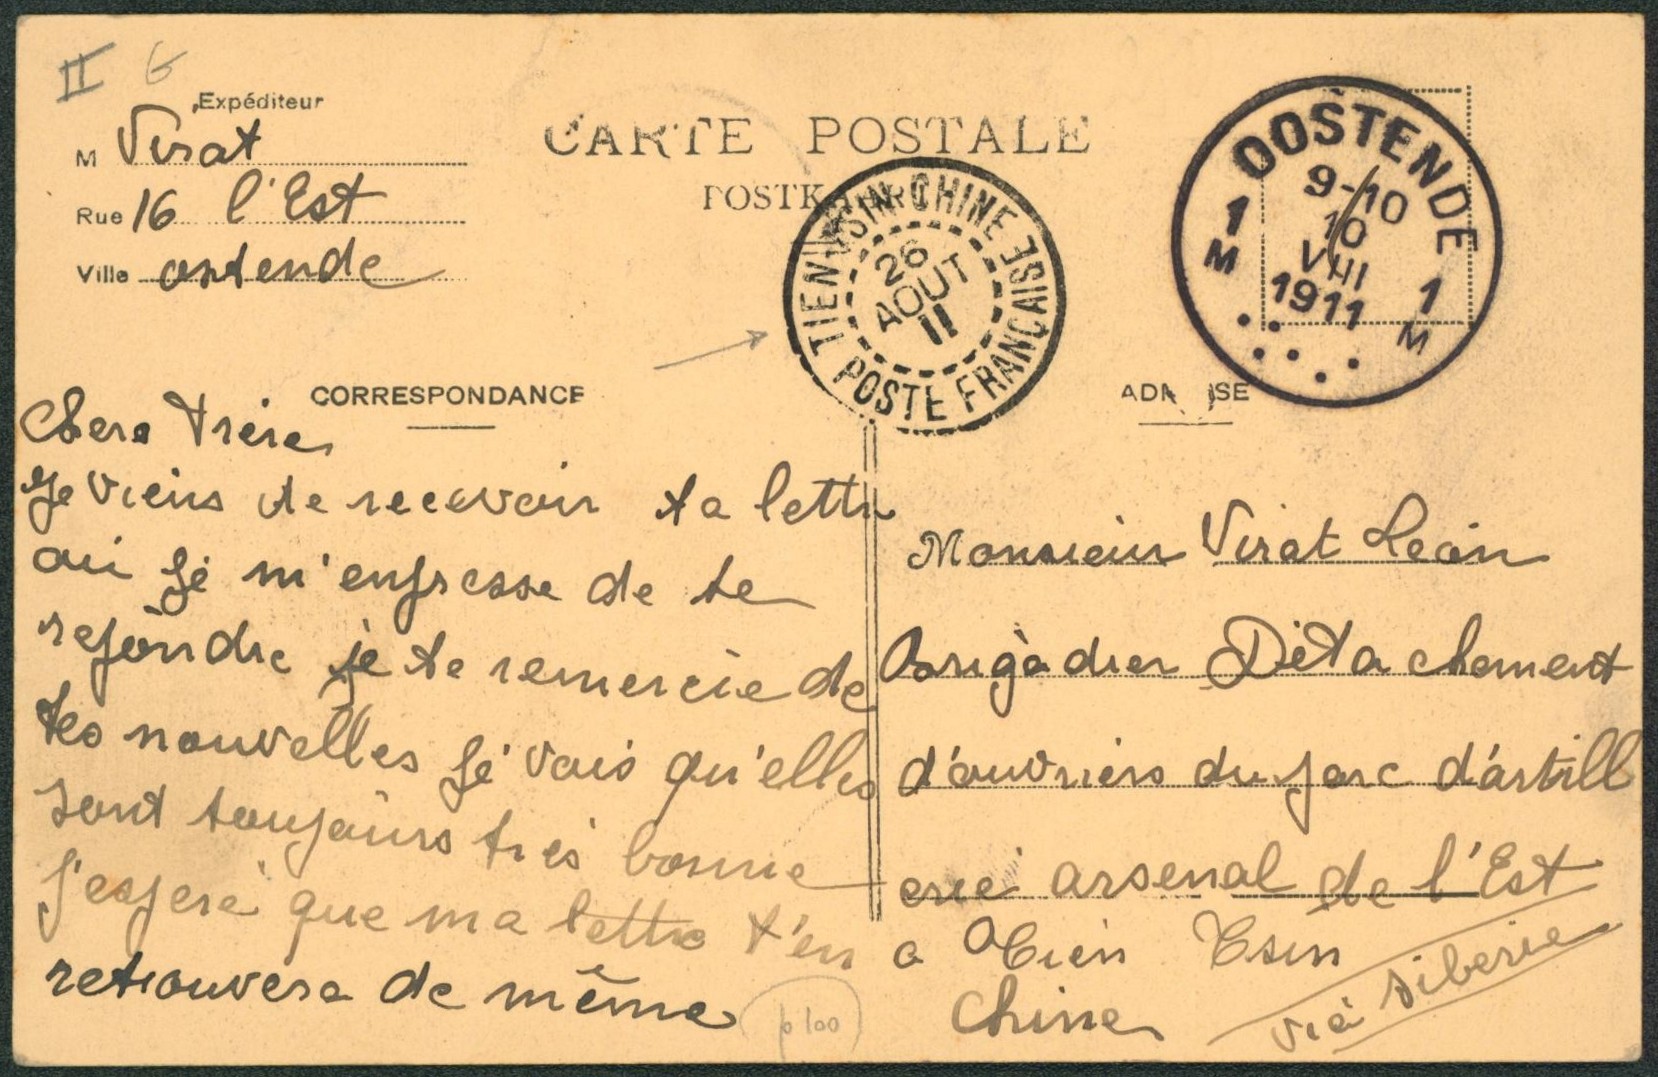 II G
Expéditeur
M Virat
Rue 16 l'Est
Ville ostende
CARTE POSTALE
POSTKAART
TIEN-TSIN-CHINE
26
AOUT
11
POSTE FRANÇAISE
OOSTENDE
9-10
10
VIII
1911
1 M
1 M
CORRESPONDANCE
Chere Frère
je viens de recevoir ta lettre
ou je m'enpresse de te
repondre je te remercie de
tes nouvelles je vois qu'elles
sont toujours très bonne
j'espere que ma lettre t'en
retrouvera de même
p 100
ADRESSE
Monsieur Virat Leon
Brigàdier Détachement
d'ouvriers du parc d'artill
erie arsenal de l'Est
a Tien Tsin
Chine
via Siberie